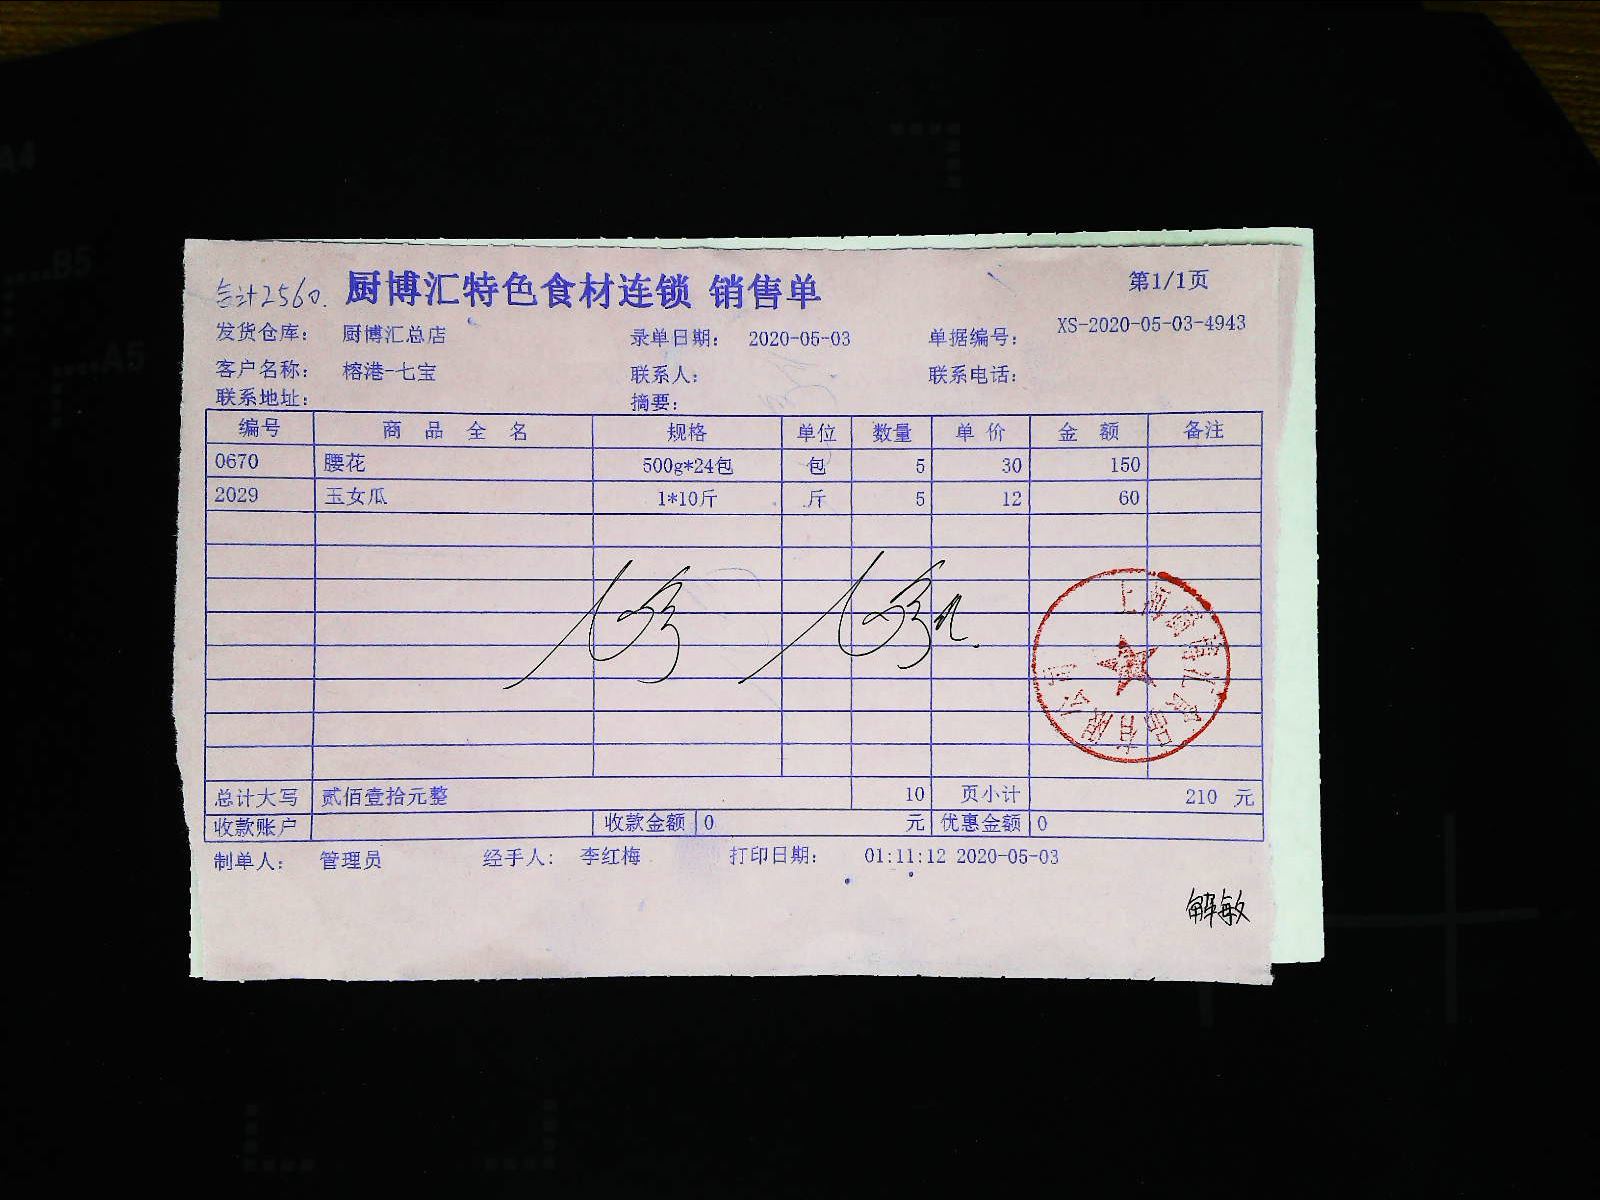 合计2560.
厨博汇特色食材连锁 销售单
第1/1页
发货仓库： 厨博汇总店 录单日期： 2020-05-03 单据编号： XS-2020-05-03-4943
客户名称： 榕港-七宝 联系人： 联系电话：
联系地址： 摘要：
编号 商品全名 规格 单位 数量 单价 金额 备注
0670 腰花 500g*24包 包 5 30 150
2029 玉女瓜 1*10斤 斤 5 12 60
上海厨博汇食品有限公司
总计大写 贰佰壹拾元整 10 页小计 210 元
收款账户 收款金额 0 元 优惠金额 0
制单人： 管理员 经手人： 李红梅 打印日期： 01:11:12 2020-05-03
解敏
A4
B5
A5